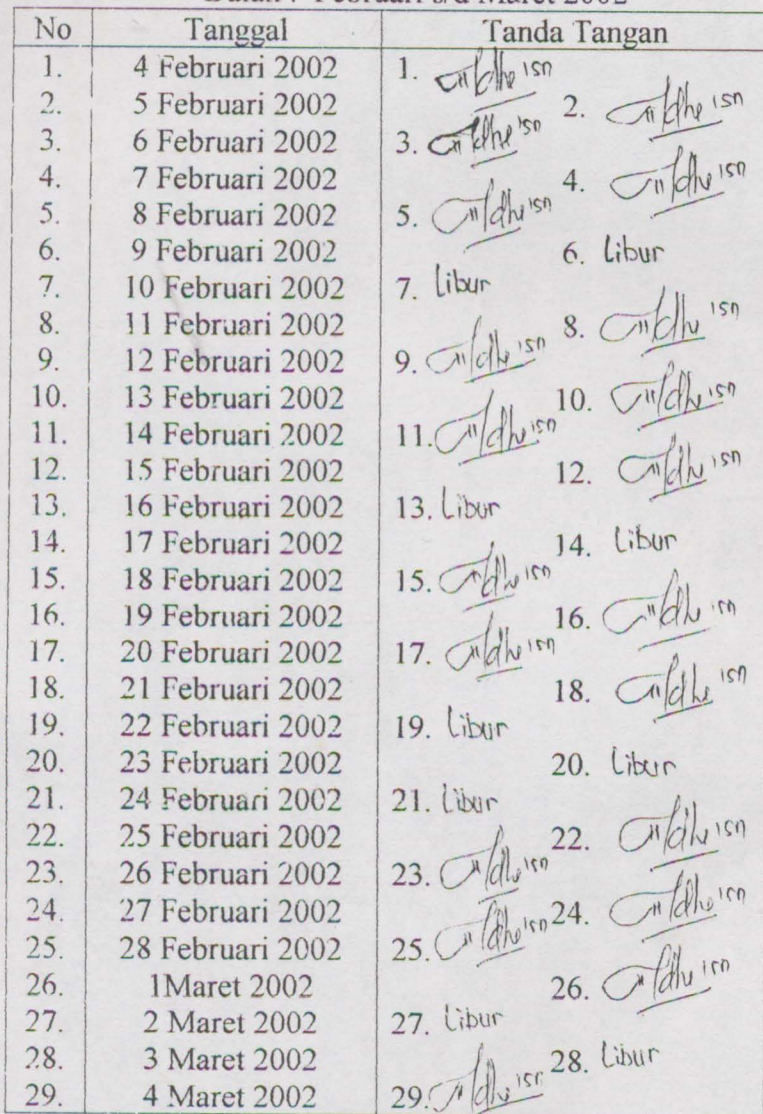 Bulan : Februari s/d Maret 2002
No Tanggal Tanda Tangan
1. 4 Februari 2002 1.
2. 5 Februari 2002 2.
3. 6 Februari 2002 3.
4. 7 Februari 2002 4.
5. 8 Februari 2002 5.
6. 9 Februari 2002 6. Libur
7. 10 Februari 2002 7. Libur
8. 11 Februari 2002 8.
9. 12 Februari 2002 9.
10. 13 Februari 2002 10.
11. 14 Februari 2002 11.
12. 15 Februari 2002 12.
13. 16 Februari 2002 13. Libur
14. 17 Februari 2002 14. Libur
15. 18 Februari 2002 15.
16. 19 Februari 2002 16.
17. 20 Februari 2002 17.
18. 21 Februari 2002 18.
19. 22 Februari 2002 19. Libur
20. 23 Februari 2002 20. Libur
21. 24 Februari 2002 21. Libur
22. 25 Februari 2002 22.
23. 26 Februari 2002 23.
24. 27 Februari 2002 24.
25. 28 Februari 2002 25.
26. 1Maret 2002 26.
27. 2 Maret 2002 27. Libur
28. 3 Maret 2002 28. Libur
29. 4 Maret 2002 29.